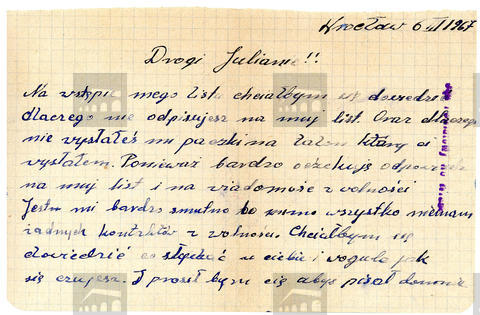 Wrocław 6 III 1967
Drogi Julianie!!
Na wstępie mego listu chciałbym się dowiedzieć
dlaczego nie odpisujesz na mój list. Oraz dlaczego
nie wysłałeś mi paczki na talon który ci
wysłałem. Ponieważ bardzo oczekuję odpowiedzi
na mój list i na wiadomość z wolności
Jestu mi bardzo smutno bo mimo wszystko niemam
żadnych kontaktów z wolności. Chciałbym się
dowiedzieć co słychać u ciebie i wogule jak
się czujesz. I prosił bym cię abyś pisał do mnie